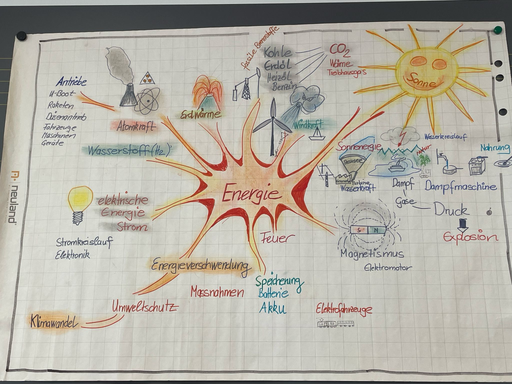 fossile Brennstoffe
Kohle
Erdöl
Heizöl
Benzin
CO₂
Wärme
Treibhausgas
Sonne
Antriebe
U-Boot
Raketen
Düsenantrieb
Fahrzeuge
Maschinen
Geräte
Atomkraft
Erdwärme
Windkraft
Wasserstoff (H₂)
Sonnenergie
Wasserkreislauf
Nahrung
Wasserkraft
Dampf
Dampfmaschine
Gase
Druck
Explosion
Energie
elektrische
Energie
Strom
Stromkreislauf
Elektronik
Feuer
Magnetismus
Elektromotor
Energieverschwendung
Speicherung
Batterie
Akku
Massnahmen
Umweltschutz
Elektrofahrzeuge
Klimawandel
neuland